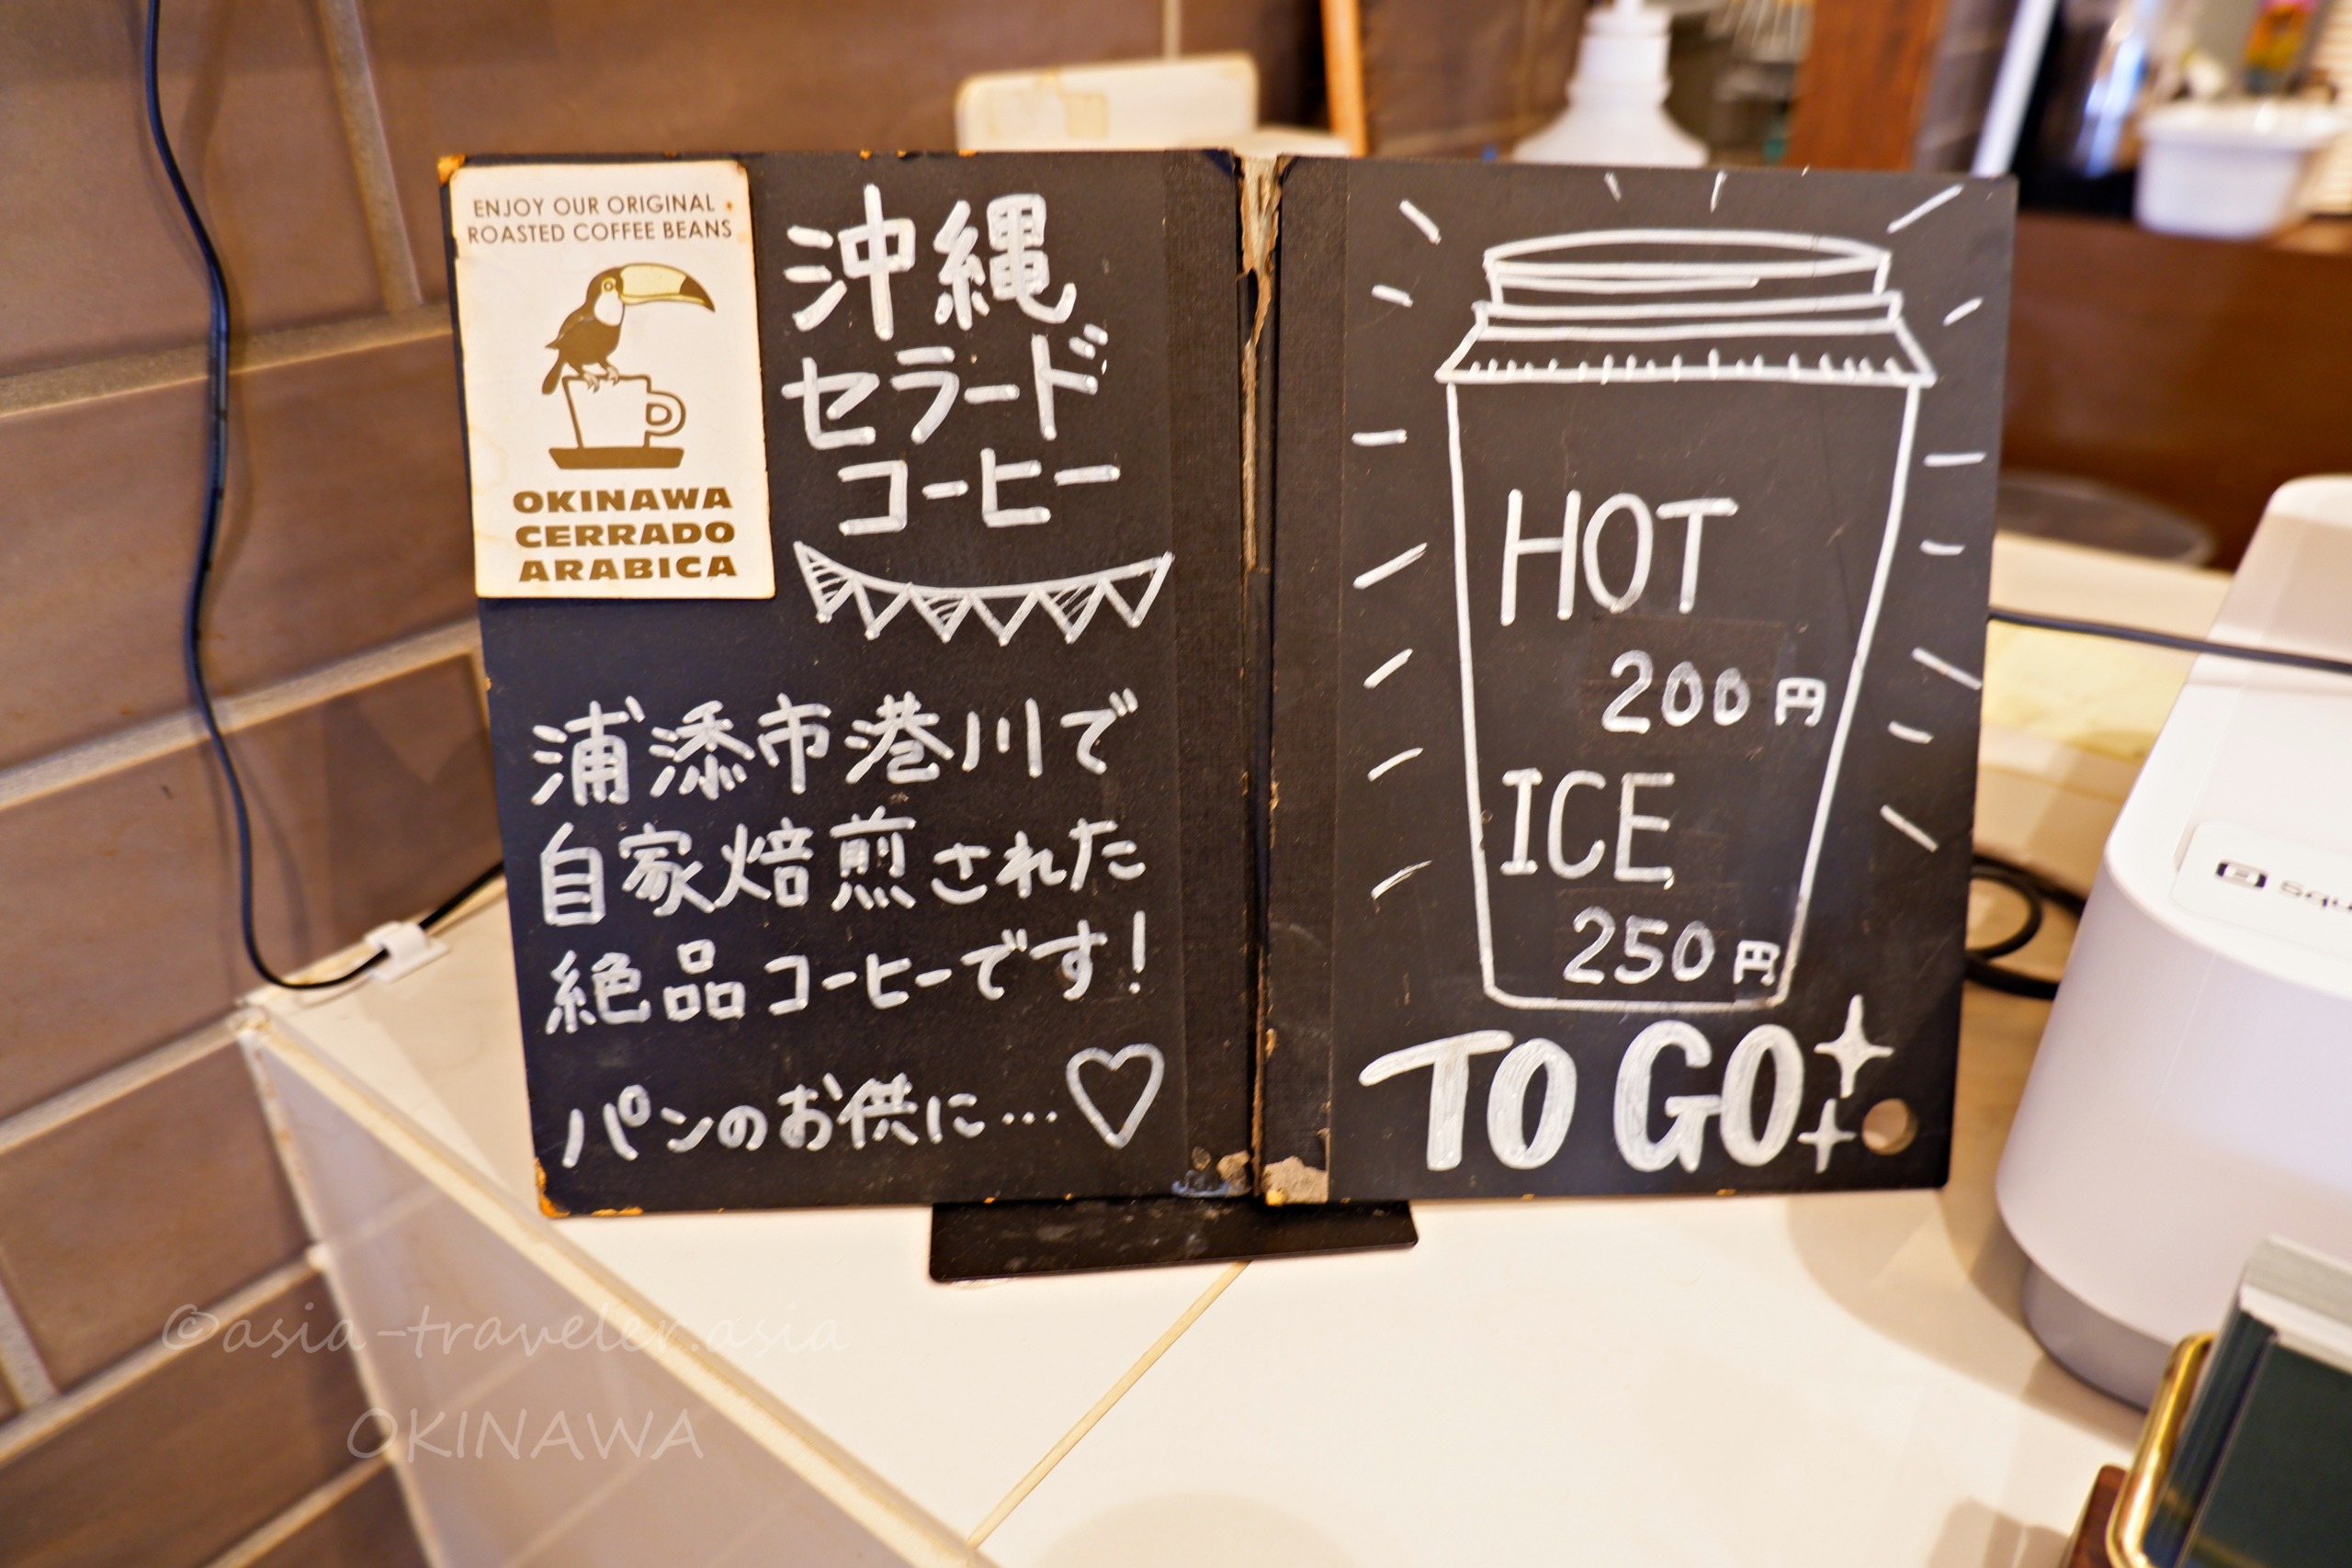 ENJOY OUR ORIGINAL
ROASTED COFFEE BEANS
OKINAWA
CERRADO
ARABICA
沖縄
セラード
コーヒー
浦添市港川で
自家焙煎された
絶品コーヒーです!
パンのお供に…♡
HOT
200円
ICE
250円
TO GO
©asia-traveler.asia
OKINAWA